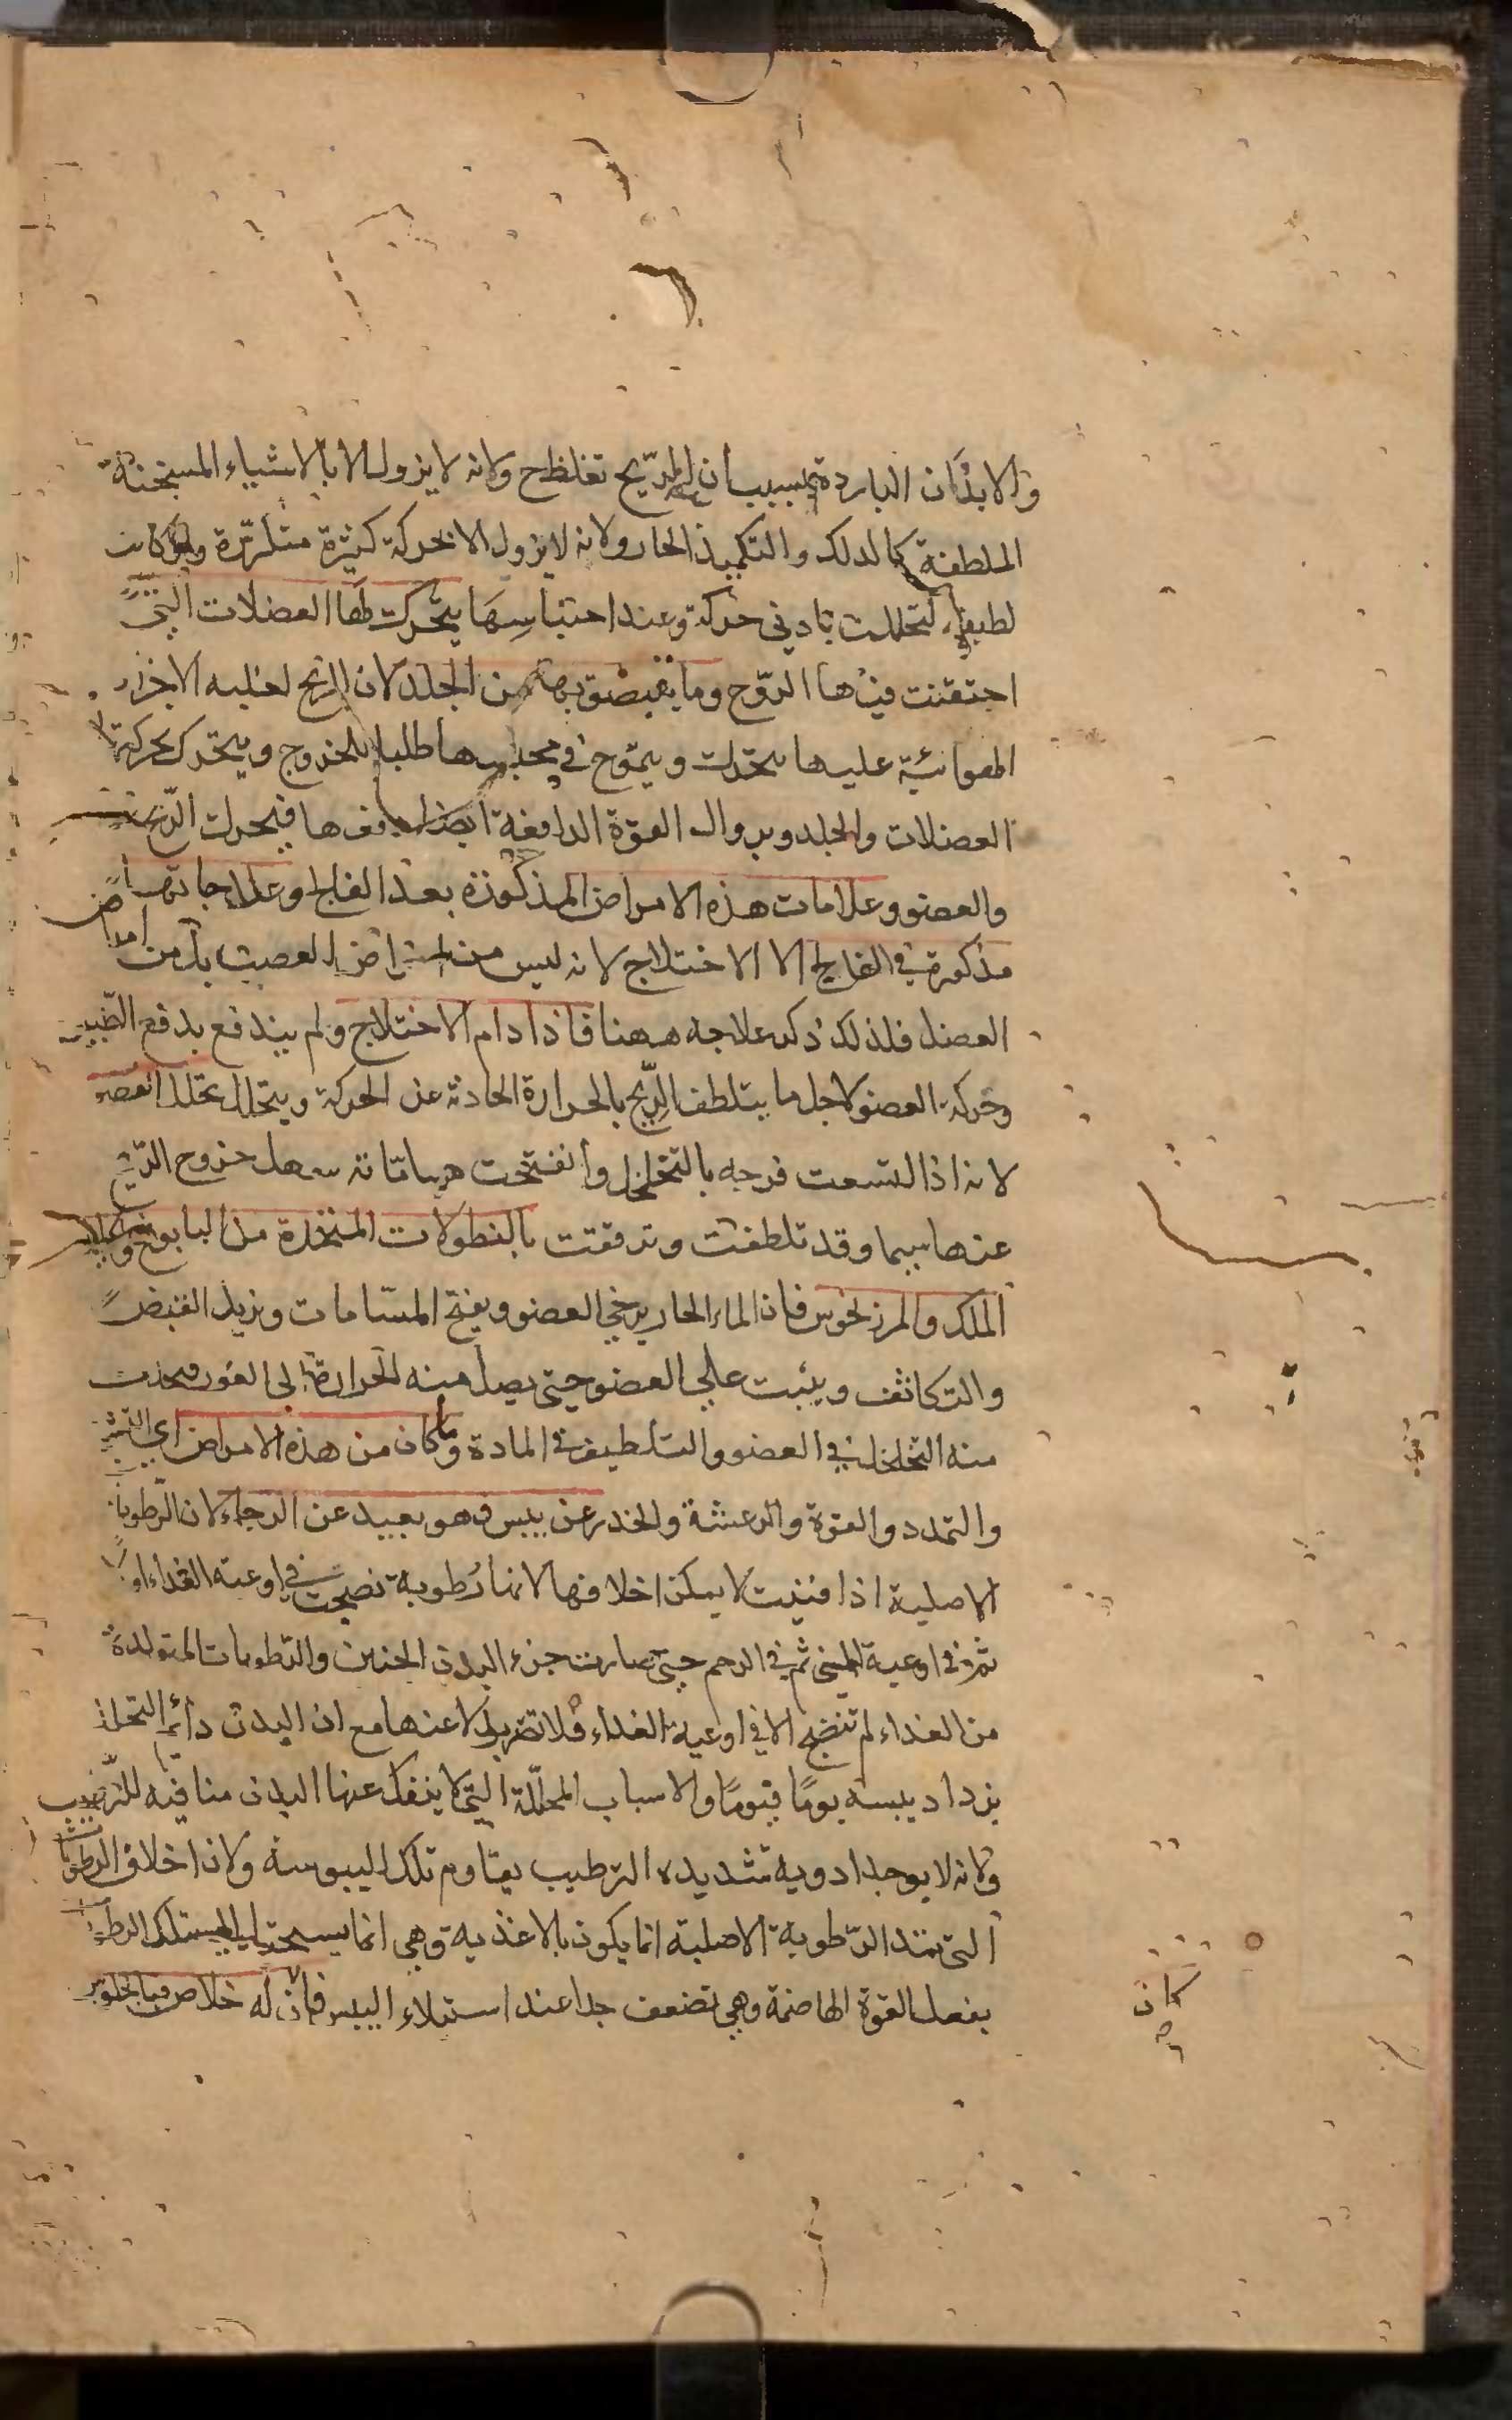 والابدان الباردة بسبب ان الريح تغلظ ح ولانه لا يزول الا بالاشياء المسخنة
الملطفة كالدلك والتكميد الحار ولانه لا يزول الا بحركة كثيرة متكررة ولو كانت
لطيفا لتحللت بادنى حركة وعند احتباسها يتحرك لها العضلات التي
احتقنت فيها الروح وما يلتصق بها من الجلد لان الريح لغلبه الاجزاء
الهوائية عليها تحرك ويموج في محلها طلبا للخروج ويتحرك بحركتها
العضلات والجلد القوة الدافعة ايضا فيتحرك الريح
والعضو وعلامات هذه الامراض المذكورة بعد الفالج وعلاجاتها
مذكورة في الفالج الا الاختلاج لانه ليس من امراض العصب بل من امراض
العضل فلذلك ذكر علاجه ههنا فاذا دام الاختلاج ولم يندفع بدفع الطبيعة
وحركة العضو لاجل ما يتلطف الريح بالحرارة الحادثة عن الحركة ويتحلل تخلل العضو
لانه اذا اتسعت فرجه بالتخلخل وانفتحت مساماته سهل خروج الريح
عنها سيما وقد تلطفت وترققت بالنطولات المتخذة من البابونج واكليل
الملك والمرزنجوش فان الماء الحار يرخي العضو ويفتح المسامات ويزيل القبض
والتكاثف ويثبت علي العضو حتى يصل منه الحرارة الى الغور فيحدث
منه التخلخل في العضو والتلطيف في المادة وما كان من هذه الامراض اي التشنج
والتمدد واللقوة والرعشة والخدر عن يبس فهو بعيد عن الرجاء لان الرطوبات
الاصلية اذا فنيت لا يمكن اخلافها لانها رطوبة نضجت في اوعية الغذاء اولا
ثم في اوعية المني ثم في الرحم حتى صارت جزء البدن الجنين والرطوبات المتولدة
من الغذاء لم تنضج الا في اوعية الغذاء فلا تقوم بدلا عنها مع ان البدن دائم التحلل
يزداد يبسه يوما فيوما والاسباب المحللة التي لا ينفك عنها البدن منافيه للترطيب
ولانه لا يوجد ادوية شديده الترطيب يقاوم تلك اليبوسة ولان اخلاف الرطوبات
التي تمد الرطوبة الاصلية انما يكون بالاغذية وهي انما يستحيل الي تلك الرطوبات
بفعل القوة الهاضمة وهي تضعف جدا عند استيلاء اليبس فان له خلاص
كان